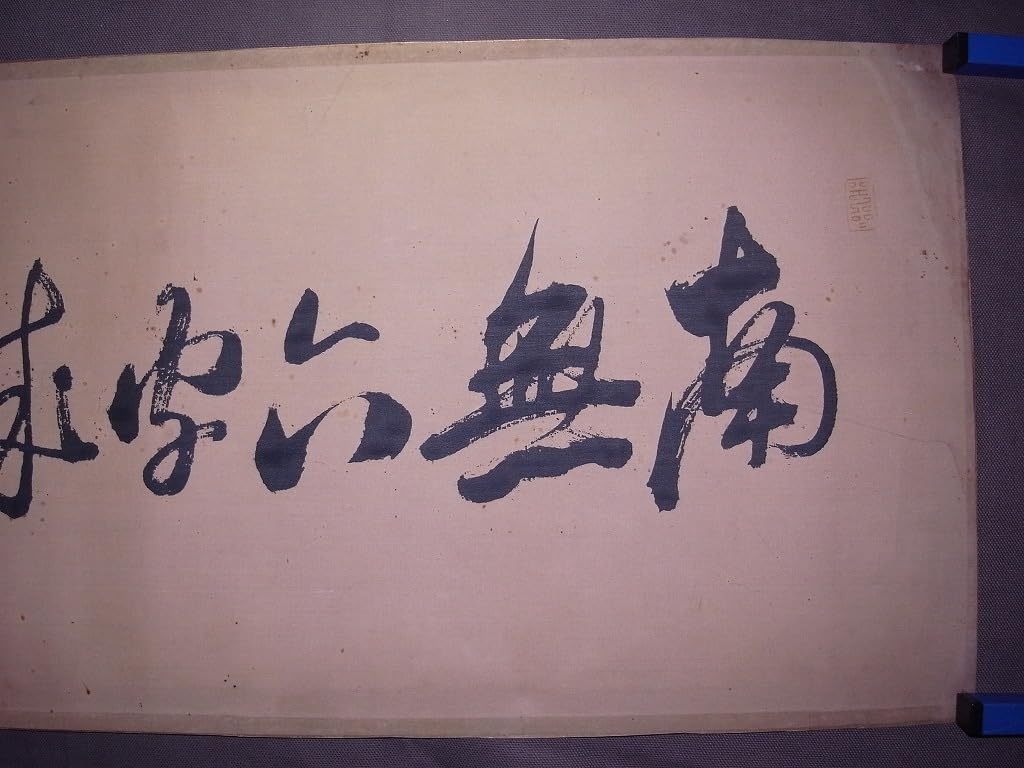 南無六字